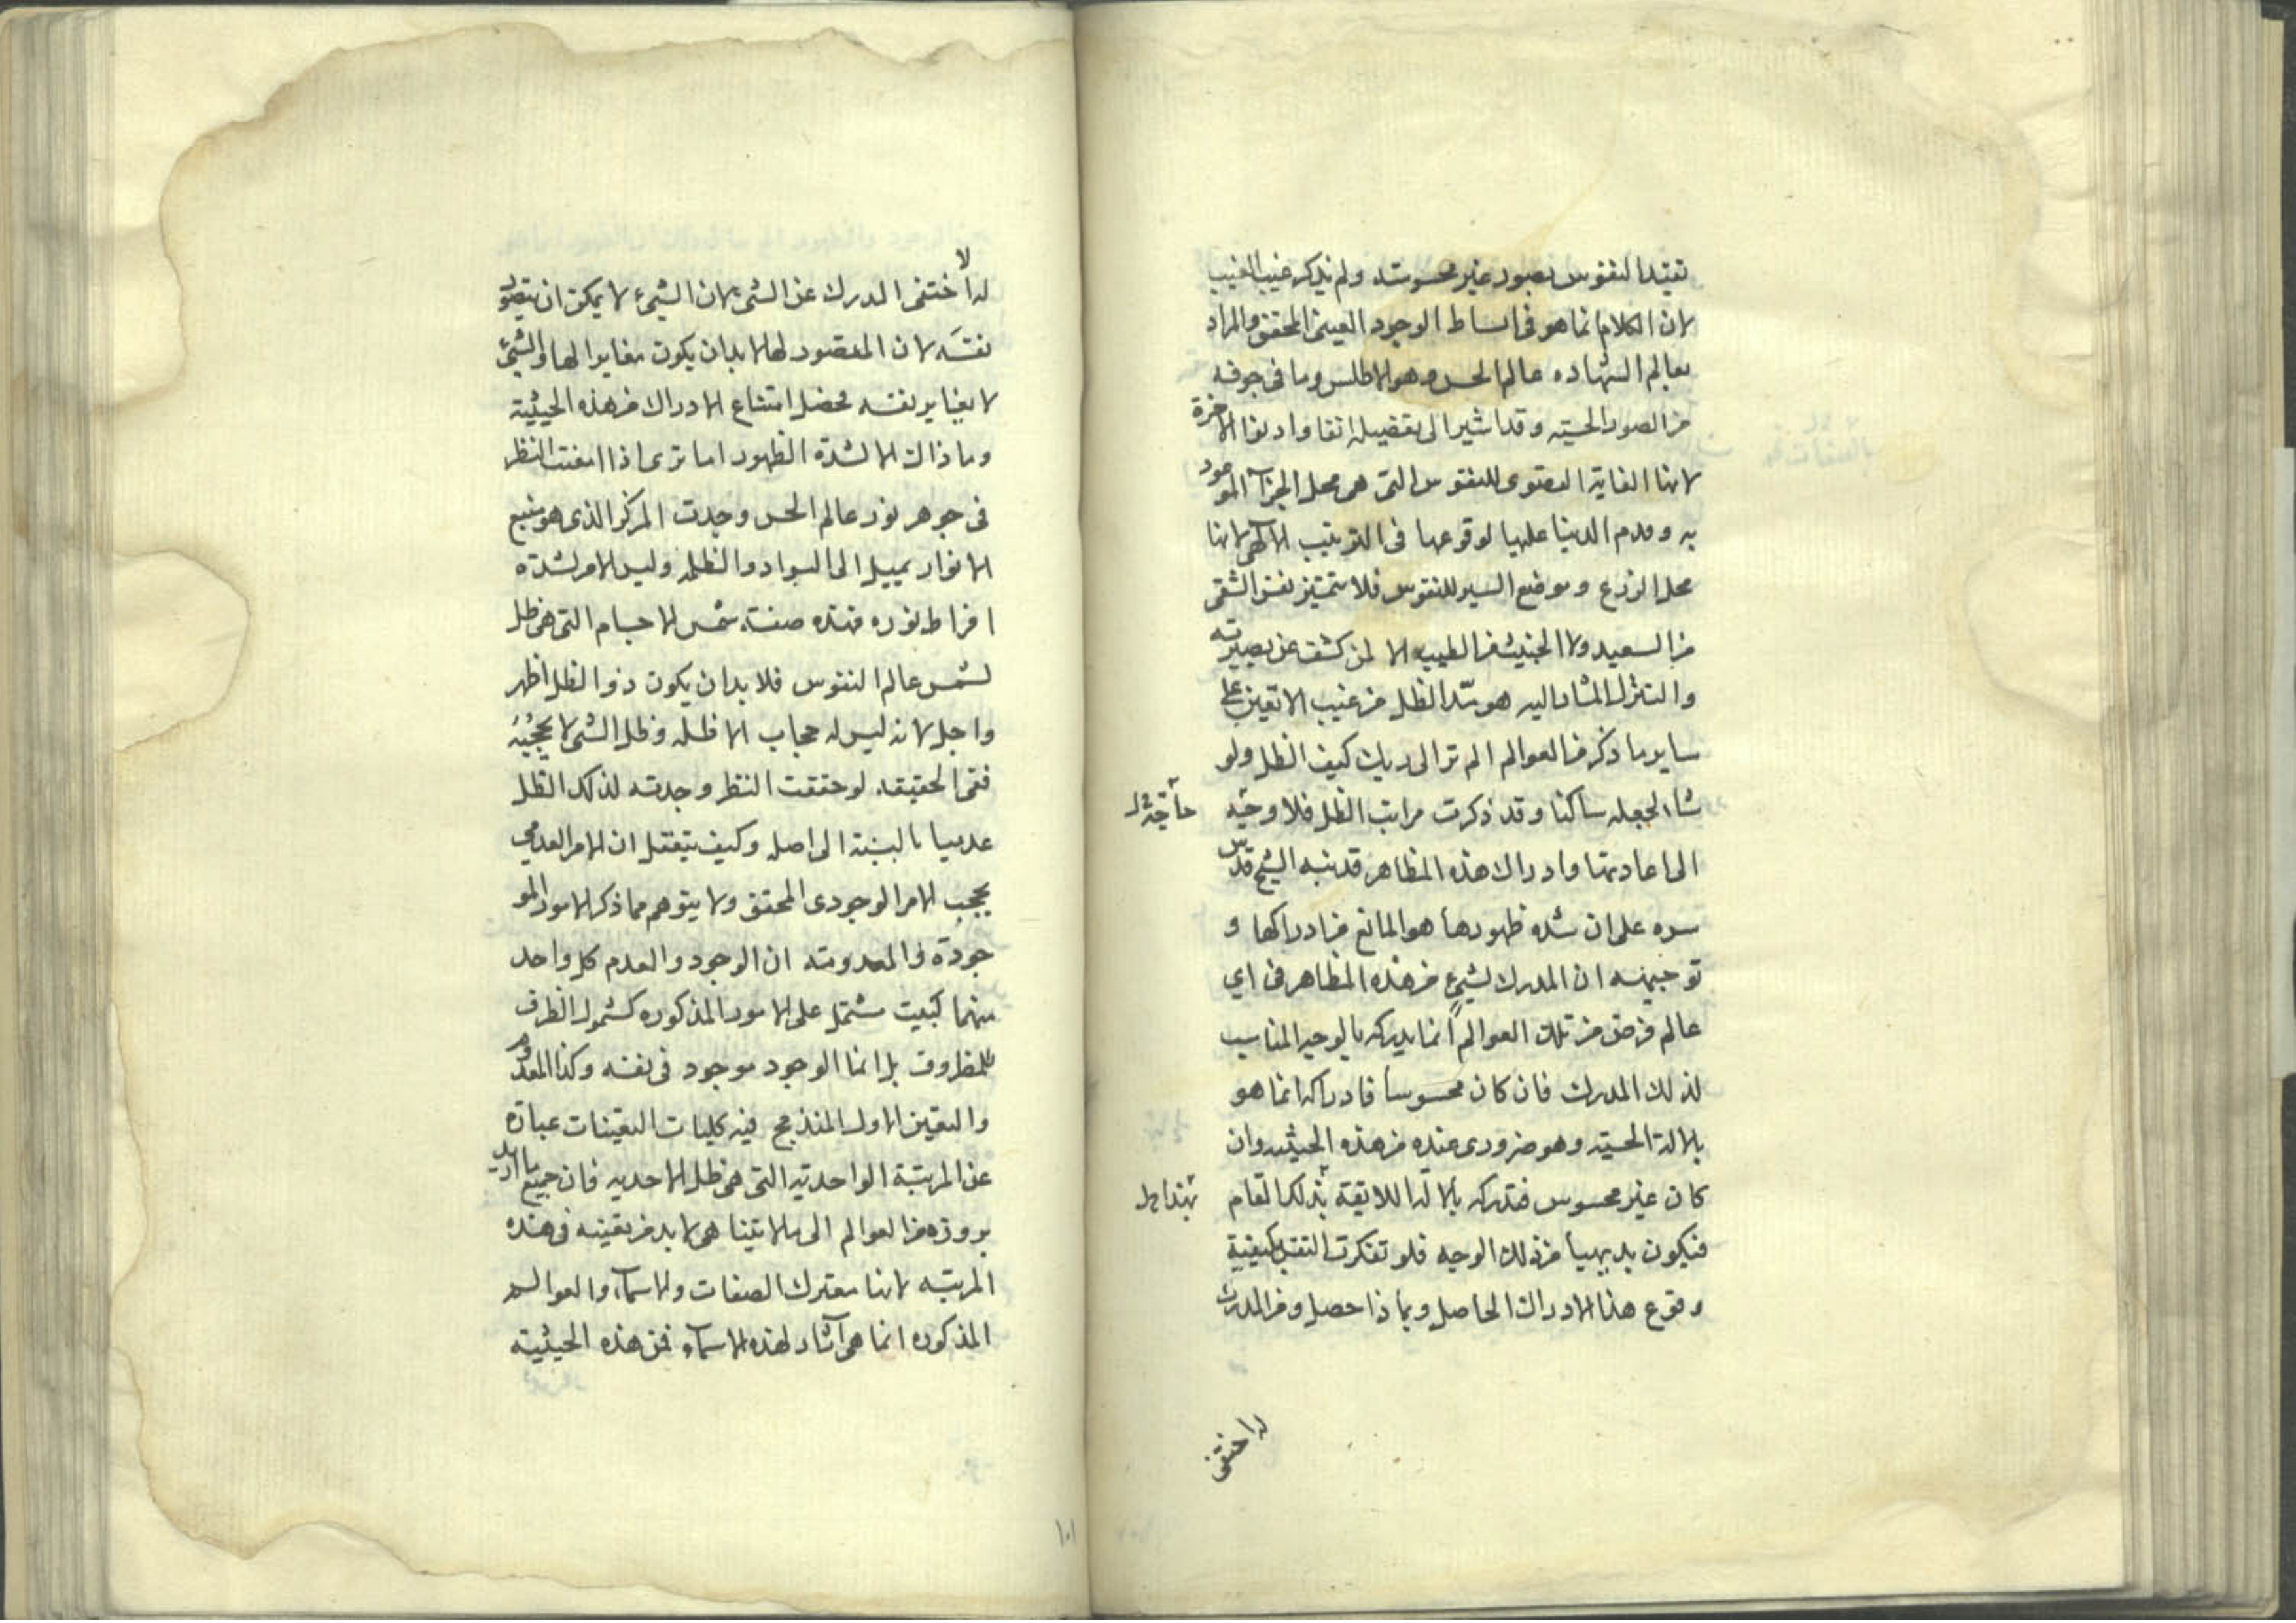 تقيد النفوس بصور غير محسوسة ولم يذكر غيب الغيب
لان الكلام انما هو في انبساط الوجود العيني المحقق والمراد
بعالم الشهاده عالم الحس وهو الاطلس وما في جوفه
من الصور الحسيه وقد اشير الى تفصيله انفا واد الاخرة
لانها الغاية القصوى للنفوس التي هي محل الجزآ الموعود
به وقدم الدنيا عليها لوقوعها في الترتيب الالهي لانها
محل الزرع وموضع السير للنفوس فلا تتميز نفس الشقي
من السعيد ولا الخبيث من الطيب الا لمن كشف عن بصيرته
والتنزل المشار اليه هو مد الظل من غيب الاتعين على
ساير ما ذكر من العوالم الم تر الى ربك كيف مد الظل ولو
شاء لجعله ساكنا وقد ذكرت مراتب الظل فلا وجه
الى اعادتها وادراك هذه المظاهر قد نبه الشيخ قدس
سره على ان شده ظهورها هو المانع من ادراكها و
توجيهه ان المدرك لشيء من هذه المظاهر في اي
عالم فرض من تلك العوالم انما يدركه بالوجه المناسب
لذلك المدرك فان كان محسوسا فادراكه انما هو
بالالة الحسيه وهو ضروري عنده من هذه الحيثيه وان
كان غير محسوس فتدركه بالالة اللايقة بذلك المقام
فيكون بديهيا من ذلك الوجه فلو تفكرت النفس كيفية
وقوع هذا الادراك الحاصل وبماذا حصل ومن المدرك
له اختفى
له لاختفى المدرك عن الشيء لان الشيء لا يمكن ان يتصور
نفسه لان المتصور لها لا بد ان يكون مغايرا لها والشيء
لا يغاير نفسه فحصل امتناع الادراك من هذه الحيثية
وما ذاك الا لشدة الظهور اما ترى اذا امعنت النظر
في جوهر نور عالم الحس وجدت المركز الذي هو منبع
الانوار يميل الى السواد والظلمه وليس الامر لشدة
افراط نوره فهذه صفة شمس الاجسام التي هي ظل
لشمس عالم النفوس فلا بد ان يكون ذو الظل اظهر
واجل لانه ليس له حجاب الا ظله وظل الشيء لا يحجبه
ففي الحقيقه لو حققت النظر وجدته لذلك الظل
عدميا بالنسبة الى اصله وكيف يتعقل ان الامر العدمي
يحجب الامر الوجودي المحقق ولا يتوهم مما ذكر الامور المو
جودة والمعدومة ان الوجود والعدم كل واحد
منهما كبيت مشتمل على الامور المذكوره كشمول الظرف
للمظروف بل انما الوجود موجود في نفسه وكذا المعدوم
والتعين الاول المندمج فيه كليات التعينات عبارة
عن المرتبة الواحدية التي هي ظل الاحديه فان جميع ما اريد
بروزه من العوالم الى ما لا يتناهى لا بد من تعينه في هذه
المرتبه لانها معترك الصفات والاسماء والعوالم
المذكوره انما هي آثار لهذه الاسماء فمن هذه الحيثية
١٠١